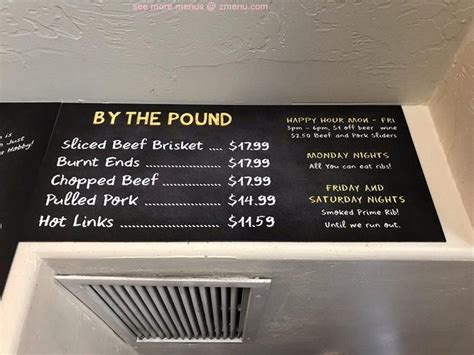 see more menus @ zmenu.com
is
Just
Hobby!
BY THE POUND
Sliced Beef Brisket .... $17.99
Burnt Ends ................... $17.99
Chopped Beef ............... $17.99
Pulled Pork .................. $14.99
Hot Links ...................... $11.59
HAPPY HOUR MON - FRI
3pm - 6pm, $1 off beer wine
$2.50 Beef and Pork Sliders
MONDAY NIGHTS
All You can eat ribs!
FRIDAY AND
SATURDAY NIGHTS
Smoked Prime Rib!
Until we run out.